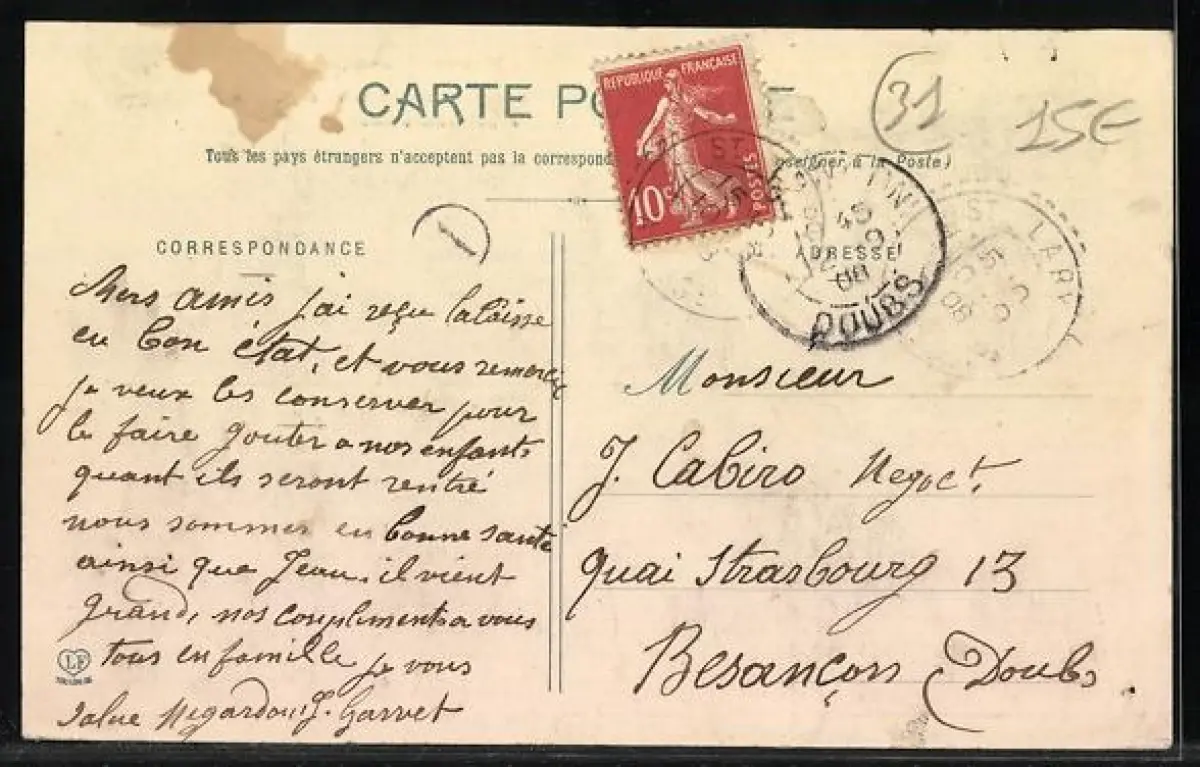 CARTE PO
Tous les pays étrangers n'acceptent pas la correspond
à la Poste)
RÉPUBLIQUE FRANÇAISE
10c
POSTES
31
15€
DOUBS
ST LARY
CORRESPONDANCE
ADRESSE
Chers amis j'ai reçu la Caisse
en bon état, et vous remercie
je veux les conserver pour
le faire gouter a nos enfants
quant ils seront rentré
nous sommes en bonne santé
ainsi que Jean, il vient
grand, nos compliments a vous
tous en famille je vous
salue
LF
Monsieur
J. Cabiro Negoct.
quai Strasbourg 13
Besançon Doubs.